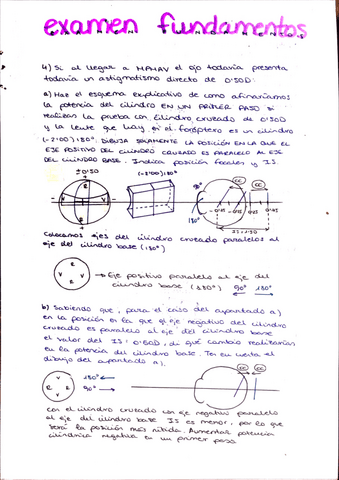 examen fundamentos
EXAMEN FUNDAMENTOS
4) Si al llegar a MPMAV el ojo todavía presenta
todavía un astigmatismo directo de 0'50D:
a) Haz el esquema explicativo de como afinaríamos
la potencia del cilindro EN UN PRIMER PASO si
realizas la prueba con cilindro cruzado de 0'50D
y la lente que hay en el foróptero es un cilindro
(-2'00)180º. DIBUJA SOLAMENTE LA POSICIÓN EN LA QUE EL
EJE POSITIVO DEL CILINDRO CRUZADO ES PARALELO AL EJE
DEL CILINDRO BASE. Indica posición focales y I.S.
±0'50 (-2'00)180º 90º CC CC
180º
IS=1'50
Colocamos ejes del cilindro cruzado paralelos al
eje del cilindro base (180º)
→ Eje positivo paralelo al eje del
cilindro base (180º) 90º 180º
b) Sabiendo que, para el caso del apartado a)
en la posición en la que el eje negativo del cilindro
cruzado es paralelo al eje del cilindro base
el valor del IS=0'50D, di que cambio realizarías
en la potencia del cilindro base. Ten en cuenta el
dibujo del apartado a).
180º
90º
CC CC
Con el cilindro cruzado con eje negativo paralelo
al eje del cilindro base IS es menor, por lo que
será la posición más nítida. Aumentar potencia
cilíndrica negativa en un primer paso